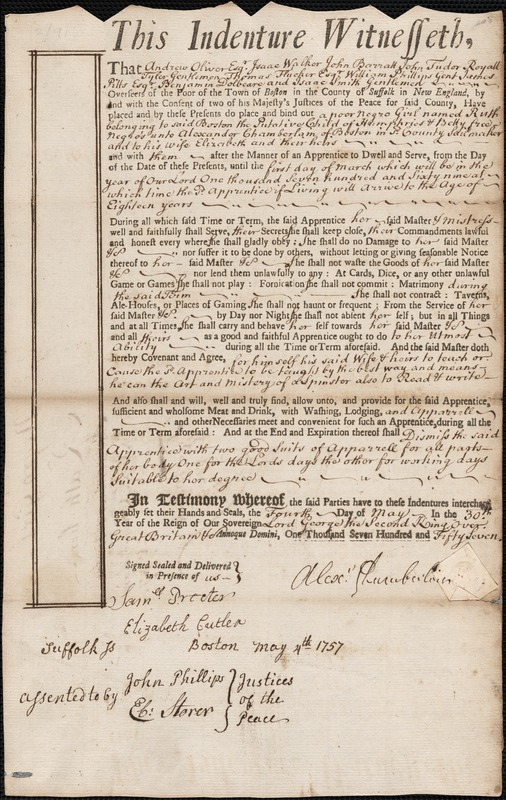 This Indenture Witnesseth,
That Andrew Oliver Esqr. Isaac Walker John Barratt John Tudor Royall
Tyler Gentlemen Thomas Flucker Esqr. William Phillips Gent James
Pitts Esqr. Benjamin Dolbeare and Isaac Smith Gentlemen
Overseers of the Poor of the Town of Boston in the County of Suffolk in New England, by
and with the Consent of two of his Majesty's Justices of the Peace for said County, Have
placed and by these Presents do place and bind out a poor Negro Girl named Ruth
belonging to said Boston the Putative Child of & Betty free
Negro's unto Alexander Chamberlain, of Boston in sd. County Sailmaker
and to his wife Elizabeth and their heirs
and with them after the Manner of an Apprentice to Dwell and Serve, from the Day
of the Date of these Presents, until the first day of march which will be in the
year of our Lord One thousand Seven hundred and Sixty nine at
which time the sd. Apprentice if Living will Arrive to the Age of
Eighteen years
During all which said Time or Term, the said Apprentice her said Master & Mistress
well and faithfully shall Serve, their Secrets she shall keep close, their Commandments lawful
and honest every where she shall gladly obey: she shall do no Damage to her said Master
&c. nor suffer it to be done by others, without letting or giving seasonable Notice
thereof to her said Master &c. she shall not waste the Goods of her said Master
&c. nor lend them unlawfully to any: At Cards, Dice, or any other unlawful
Game or Games she shall not play: Fornication she shall not commit: Matrimony during
the said Term she shall not contract: Taverns,
Ale-Houses, or Places of Gaming she shall not haunt or frequent: From the Service of her
said Master &c. by Day nor Night she shall not absent her self; but in all Things
and at all Times, she shall carry and behave her self towards her said Master &c.
and all theirs as a good and faithful Apprentice ought to do to her Utmost
Ability during all the Time or Term aforesaid. And the said Master doth
hereby Covenant and Agree, for himself his said Wife & heirs to teach or
Cause the sd. Apprentice to be taught by the best way and means
he can the Art and Mistery of a Spinster also to Read & write
And also shall and will, well and truly find, allow unto, and provide for the said Apprentice,
sufficient and wholsome Meat and Drink, with Washing, Lodging, and Apparrell
and other Necessaries meet and convenient for such an Apprentice, during all the
Time or Term aforesaid: And at the End and Expiration thereof shall Dismiss the said
Apprentice with two good Suits of Apparrell for all parts
of her body One for the Lords days the other for working days
Suitable to her degree
In Testimony whereof, the said Parties have to these Indentures interchan-
geably set their Hands and Seals, the Fourth Day of May In the 30th.
Year of the Reign of Our Sovereign Lord George the Second King over
Great Britain &c. Annoque Domini, One Thousand Seven Hundred and Fifty Seven.
Signed Sealed and Delivered
in Presence of us
Alexr. Chamberlain
Saml. Procter
Elizabeth Cutler
Suffolk Ss Boston May 4th. 1757
assented to by John Phillips } Justices
of the
Eb: Storer } Peace